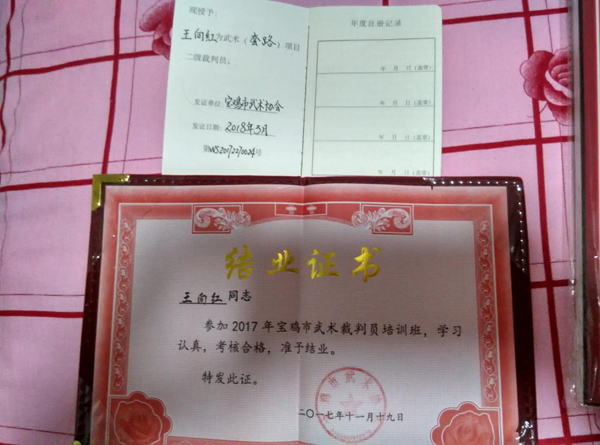 现授予：
王向红为武术（套路）项目
二级裁判员。
发证单位：宝鸡市武术协会
发证日期：2018年3月
第WS2017270024号
年度注册记录
年 月 日（盖章）
年 月 日（盖章）
年 月 日（盖章）
年 月 日（盖章）
结业证书
王向红同志
参加2017年宝鸡市武术裁判员培训班，学习
认真，考核合格，准予结业。
特发此证。
二〇一七年十一月十九日